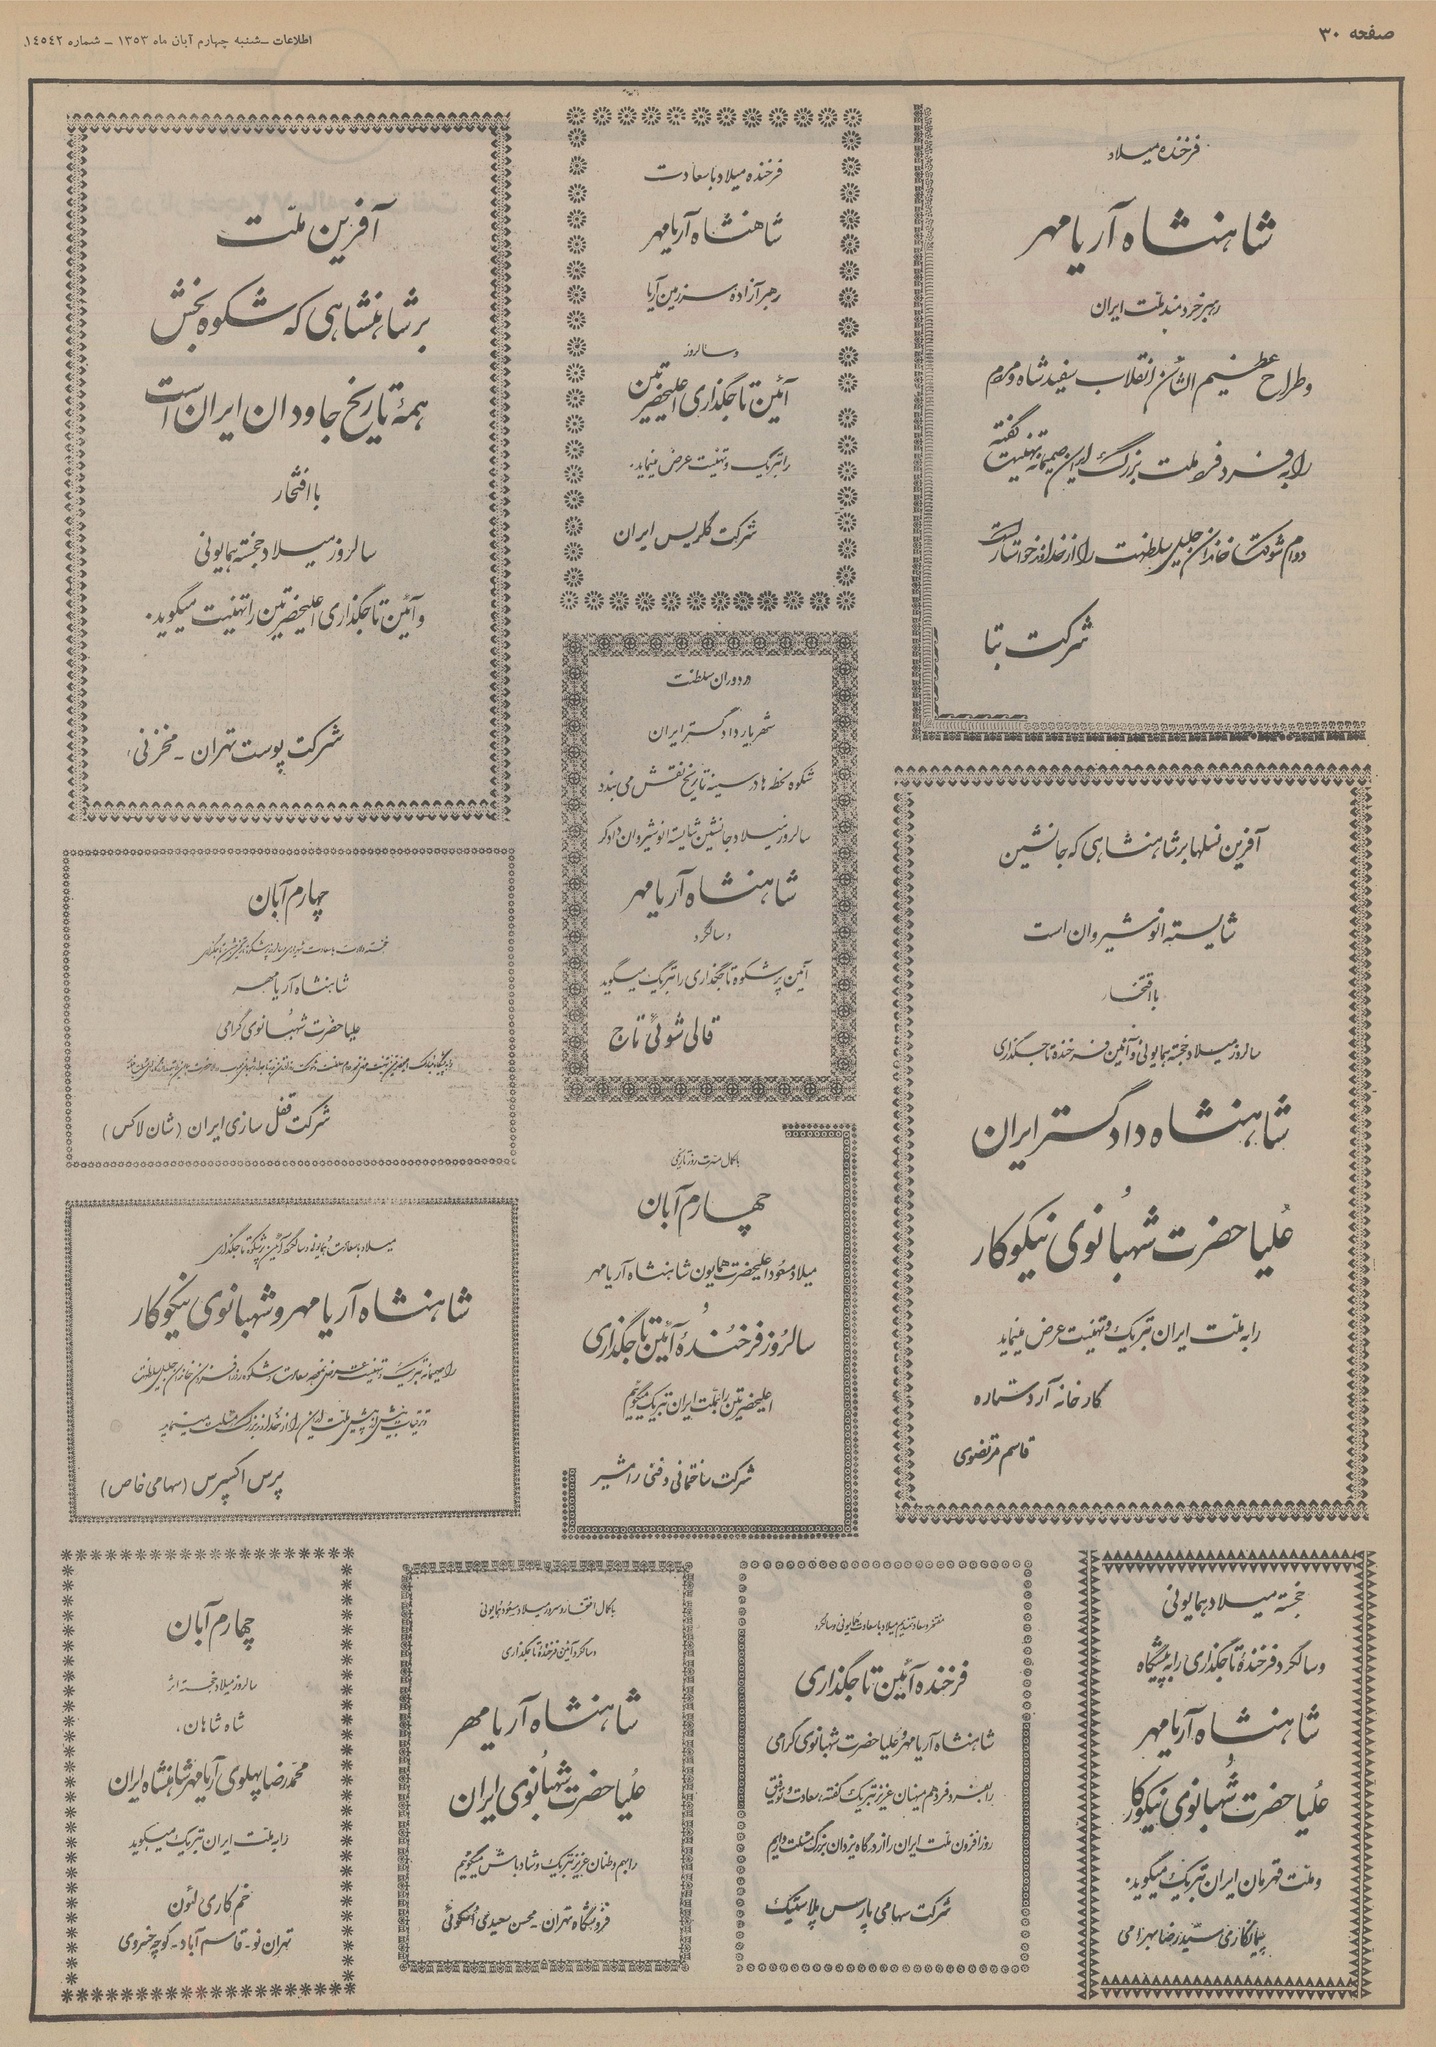 صفحه ۳۰
اطلاعات - شنبه چهارم آبان ماه ۱۳۵۳ - شماره ۱۴۵۴۲
فرخنده میلاد
شاهنشاه آریامهر
رهبر خردمند ملت ایران
وطراح عظیم الشأن انقلاب سفید شاه و مردم
را به فرد فرد ملت بزرگ ایران صمیمانه تهنیت گفته
دوام شوکت خاندان جلیل سلطنت را از خداوند خواستار است
شرکت بتا
فرخنده میلاد باسعادت
شاهنشاه آریامهر
رهبر آزاده سرزمین آریا
وسالروز
آئین تاجگذاری اعلیحضرتین
را تبریک وتهنیت عرض مینماید.
شرکت گلریس ایران
آفرین ملت
بر شاهنشاهی که شکوه بخش
همهٔ تاریخ جاودان ایران است
با افتخار
سالروز میلاد خجسته همایونی
و آئین تاجگذاری اعلیحضرتین را تهنیت میگوید.
شرکت پوست تهران - مخزنی
در دوران سلطنت
شهریار دادگستر ایران
شکوه لحظه ها در سینه تاریخ نقش می بندد
سالروز میلاد جانشین شایسته انوشیروان دادگر
شاهنشاه آریامهر
وسالگرد
آئین پرشکوه تاجگذاری را تبریک میگوید
قالی شوئی تاج
آفرین نسلها بر شاهنشاهی که جانشین
شایسته انوشیروان است
با افتخار
سالروز میلاد خجسته همایونی و آئین فرخنده تاجگذاری
شاهنشاه دادگستر ایران
عُلیا حضرت شهبانوی نیکوکار
را به ملت ایران تبریک و تهنیت عرض مینماید
کارخانه آرد ستاره
قاسم مرتضوی
چهارم آبان
شاهنشاه آریامهر
علیاحضرت شهبانوی گرامی
شرکت قفل سازی ایران (شان لاکس)
باکمال مسرت روز تاریخی
چهارم آبان
میلاد مسعود اعلیحضرت همایون شاهنشاه آریامهر
و
سالروز فرخنده آئین تاجگذاری
اعلیحضرتین را بملت ایران تبریک میگوئیم
شرکت ساختمانی و فنی رامشیر
میلاد باسعادت همایونی و سالگرد آئین پرشکوه تاجگذاری
شاهنشاه آریامهر و شهبانوی نیکوکار
را صمیمانه تبریک و تهنیت عرض نموده سعادت و شکوه روز افزون خاندان جلیل سلطنت
و ترقیات بیش از پیش ملت ایران را از خداوند بزرگ مسئلت مینماید
پرس اکسپرس (سهامی خاص)
خجسته میلاد همایونی
وسالگرد فرخنده تاجگذاری را به پیشگاه
شاهنشاه آریامهر
و
عُلیا حضرت شهبانوی نیکوکار
و ملت قهرمان ایران تبریک میگوید.
پیمانکاری سید رضا بهرامی
مفتخر و سعادتمندیم میلاد باسعادت همایونی و سالگرد
فرخنده آئین تاجگذاری
شاهنشاه آریامهر و علیا حضرت شهبانوی گرامی
را بفرد فرد هم میهنان عزیز تبریک گفته، سعادت و توفیق
روزافزون ملت ایران را از درگاه یزدان بزرگ مسئلت داریم
شرکت سهامی پارس پلاستیک
باکمال افتخار و سرور میلاد مسعود همایونی
وسالگرد آئین فرخنده تاجگذاری
شاهنشاه آریامهر
عُلیا حضرت شهبانوی ایران
را بهم وطنان عزیز تبریک و شادباش میگوئیم
فروشگاه تهران - محسن سعیدی اسکوئی
چهارم آبان
سالروز میلاد خجسته اثر
شاه شاهان،
محمدرضا پهلوی آریامهر شاهنشاه ایران
را به ملت ایران تبریک میگوید
خم کاری لئون
تهران نو - قاسم آباد - کوچه خسروی